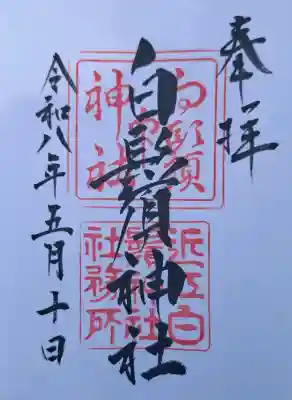 奉拝
白鬚
神社
白鬚神社
近江白
鬚神社
社務所
令和八年五月十日